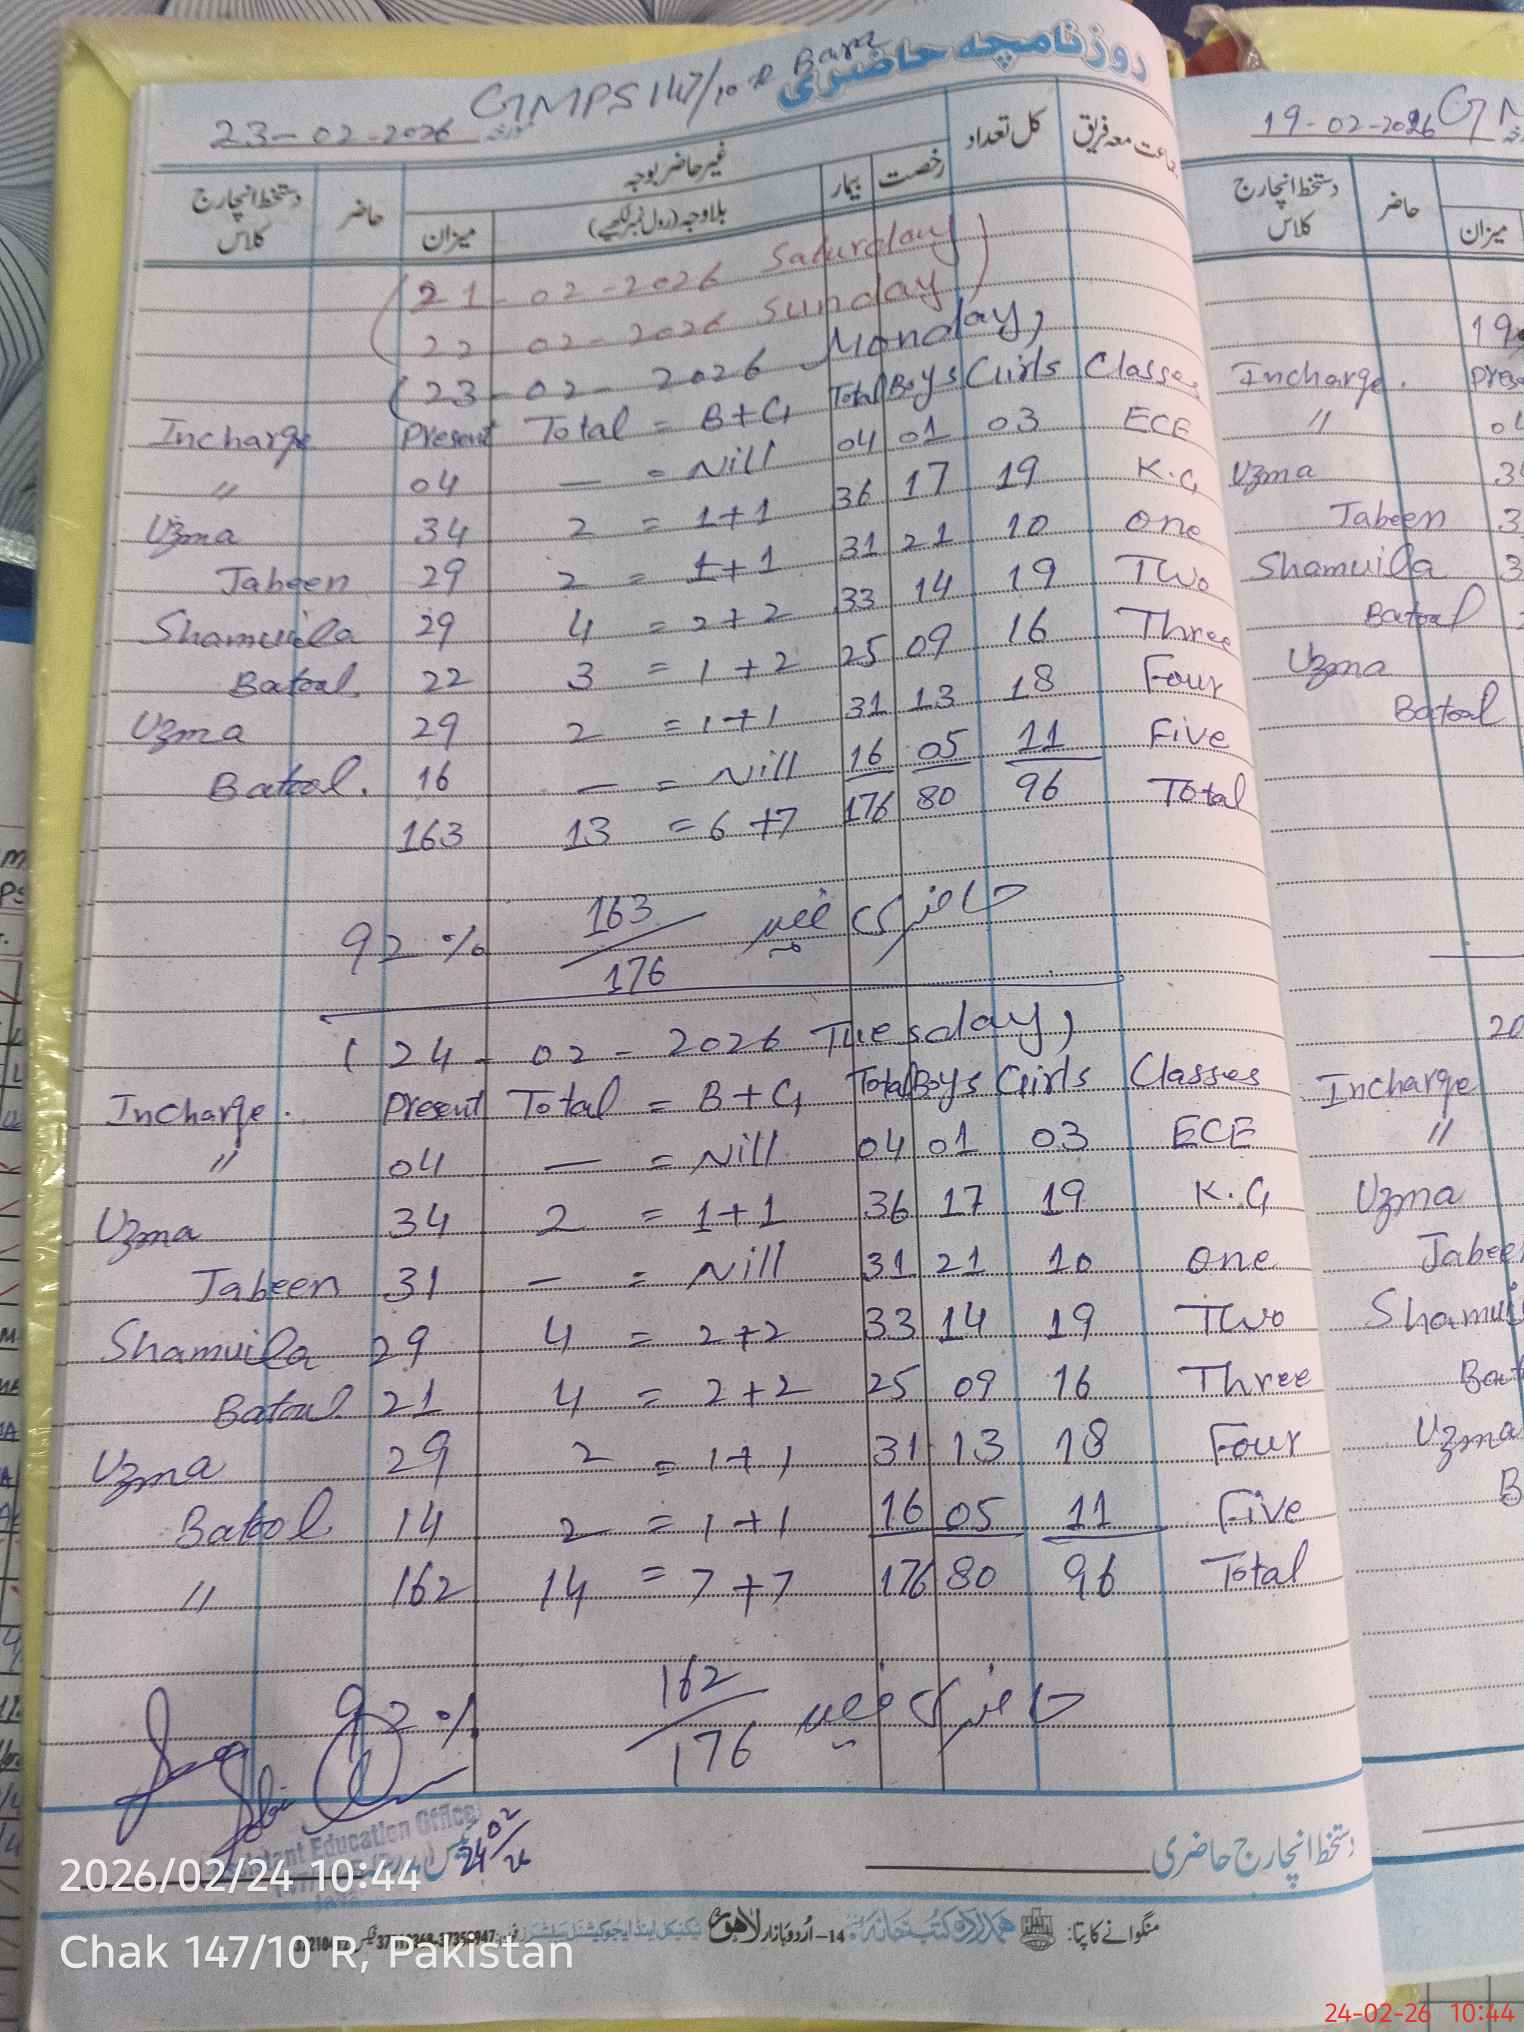 روزنامچہ حاضری
GMPS 147/10 R Barz
23-02-2026 مورخہ
جماعت معہ فریق کل تعداد رخصت بیمار غیر حاضر بوجہ حاضر دستخط انچارج کلاس
بلاوجہ (رول نمبر لکھیے) میزان
(21-02-2026 Saturday)
(22-02-2026 Sunday)
(23-02-2026 Monday)
Incharge Present Total = B+G Total Boys Girls Classes
〃 04 — = Nill 04 01 03 ECE
Uzma 34 2 = 1+1 36 17 19 K.G
Jabeen 29 2 = 1+1 31 21 10 One
Shamuila 29 4 = 2+2 33 14 19 Two
Batool 22 3 = 1+2 25 09 16 Three
Uzma 29 2 = 1+1 31 13 18 Four
Batool. 16 — = Nill 16 05 11 Five
163 13 = 6+7 176 80 96 Total
92% 163/176 حاضری فیصد
(24-02-2026 Tuesday)
Incharge. Present Total = B+G Total Boys Girls Classes
〃 04 — = Nill 04 01 03 ECE
Uzma 34 2 = 1+1 36 17 19 K.G
Jabeen 31 — = Nill 31 21 10 One
Shamuila 29 4 = 2+2 33 14 19 Two
Batool 21 4 = 2+2 25 09 16 Three
Uzma 29 2 = 1+1 31 13 18 Four
Batool 14 2 = 1+1 16 05 11 Five
〃 162 14 = 7+7 176 80 96 Total
92% 162/176 حاضری فیصد
Education Office
24/02/26
دستخط انچارج حاضری
منگوانے کا پتا: ہمدرد کتب خانہ 14-اُردو بازار لاہور
19-02-2026
دستخط انچارج کلاس حاضر میزان
Incharge.
〃
Uzma
Jabeen
Shamuila
Batool
Uzma
Batool
Incharge
〃
Uzma
2026/02/24 10:44
Chak 147/10 R, Pakistan
24-02-26 10:44